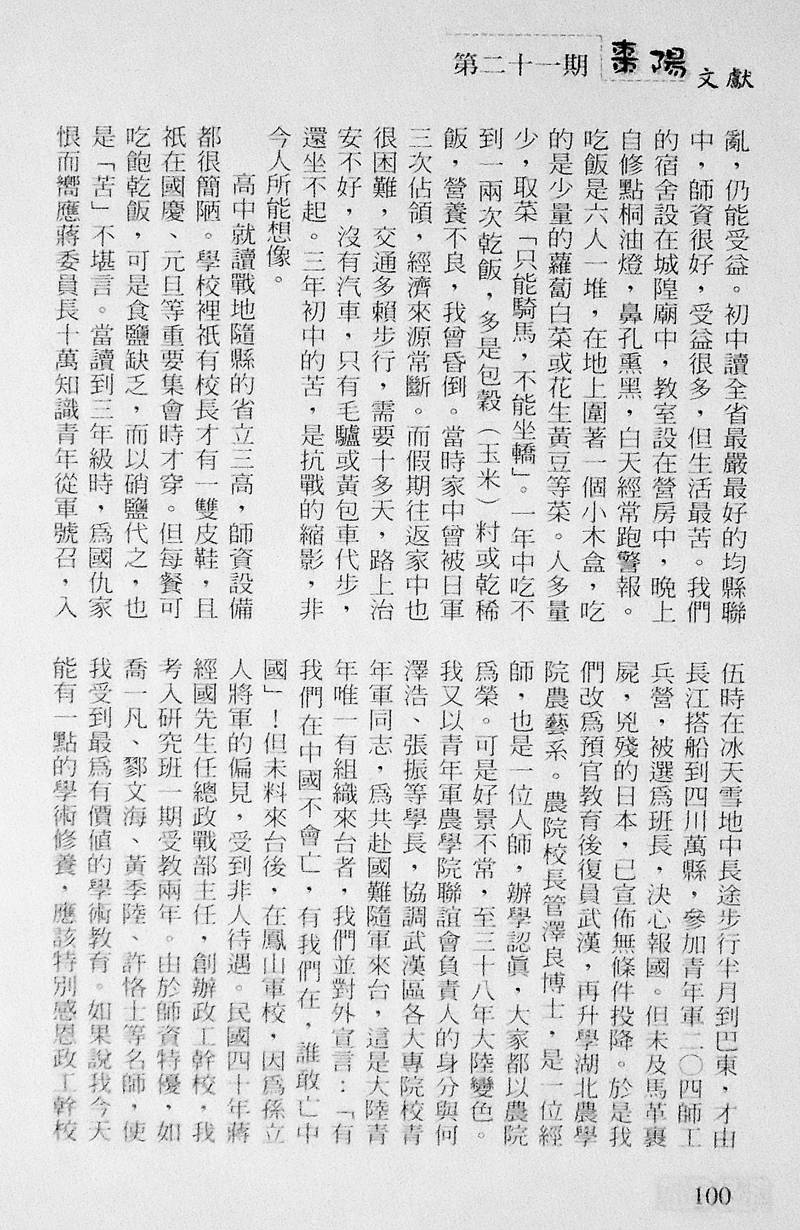 第二十一期 棗陽文獻
亂，仍能受益。初中讀全省最嚴最好的均縣聯
中，師資很好，受益很多，但生活最苦。我們
的宿舍設在城隍廟中，教室設在營房中，晚上
自修點桐油燈，鼻孔熏黑，白天經常跑警報。
吃飯是六人一堆，在地上圍著一個小木盒，吃
的是少量的蘿蔔白菜或花生黃豆等菜。人多量
少，取菜「只能騎馬，不能坐轎」。一年中吃不
到一兩次乾飯，多是包穀（玉米）籿或乾稀
飯，營養不良，我曾昏倒。當時家中曾被日軍
三次佔領，經濟來源常斷。而假期往返家中也
很困難，交通多賴步行，需要十多天，路上治
安不好，沒有汽車，只有毛驢或黃包車代步，
還坐不起。三年初中的苦，是抗戰的縮影，非
今人所能想像。
高中就讀戰地隨縣的省立三高，師資設備
都很簡陋。學校裡祇有校長才有一雙皮鞋，且
祇在國慶、元旦等重要集會時才穿。但每餐可
吃飽乾飯，可是食鹽缺乏，而以硝鹽代之，也
是「苦」不堪言。當讀到三年級時，爲國仇家
恨而嚮應蔣委員長十萬知識青年從軍號召，入
伍時在冰天雪地中長途步行半月到巴東，才由
長江搭船到四川萬縣，參加青年軍二〇四師工
兵營，被選爲班長，決心報國。但未及馬革裹
屍，兇殘的日本，已宣佈無條件投降。於是我
們改爲預官教育後復員武漢，再升學湖北農學
院農藝系。農院校長管澤良博士，是一位經
師，也是一位人師，辦學認眞，大家都以農院
爲榮。可是好景不常，至三十八年大陸變色。
我又以青年軍農學院聯誼會負責人的身分與何
澤浩、張振等學長，協調武漢區各大專院校青
年軍同志，爲共赴國難隨軍來台，這是大陸青
年唯一有組織來台者，我們並對外宣言：「有
我們在中國不會亡，有我們在，誰敢亡中
國」！但未料來台後，在鳳山軍校，因爲孫立
人將軍的偏見，受到非人待遇。民國四十年蔣
經國先生任總政戰部主任，創辦政工幹校，我
考入研究班一期受教兩年。由於師資特優，如
喬一凡、鄒文海、黃季陸、許恪士等名師，使
我受到最爲有價值的學術教育。如果說我今天
能有一點的學術修養，應該特別感恩政工幹校
100